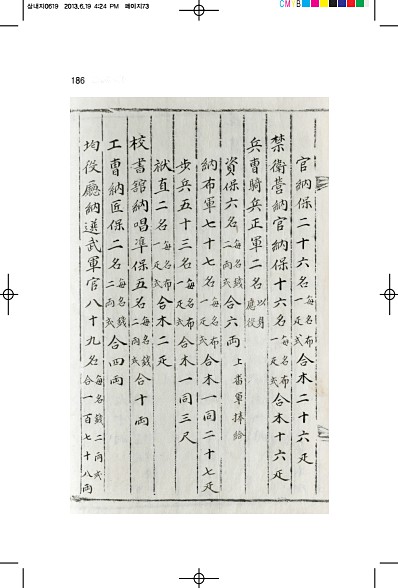 삼내지0619 2013.6.19 4:24 PM 페이지73
CMYB
186
官納保二十六名每名布一疋式合木二十六疋
禁衛營納官納保十六名每名布一疋式合木十六疋
兵曹騎兵正軍二名以身應役
資保六名每名錢二兩式合六兩上番軍捧給
納布軍七十七名每名布一疋式合木一同二十七疋
步兵五十三名每名布一疋式合木一同三疋
獄直二名每名布一疋式合木二疋
校書館納唱準保五名每名錢二兩式合十兩
工曹納匠保二名每名錢二兩式合四兩
均役廳納選武軍官八十九名每名錢二兩式合一百七十八兩